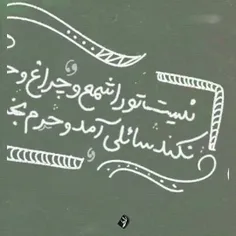 نیست تو را شمع و چراغ و
نکند سائلی آمد و حرم